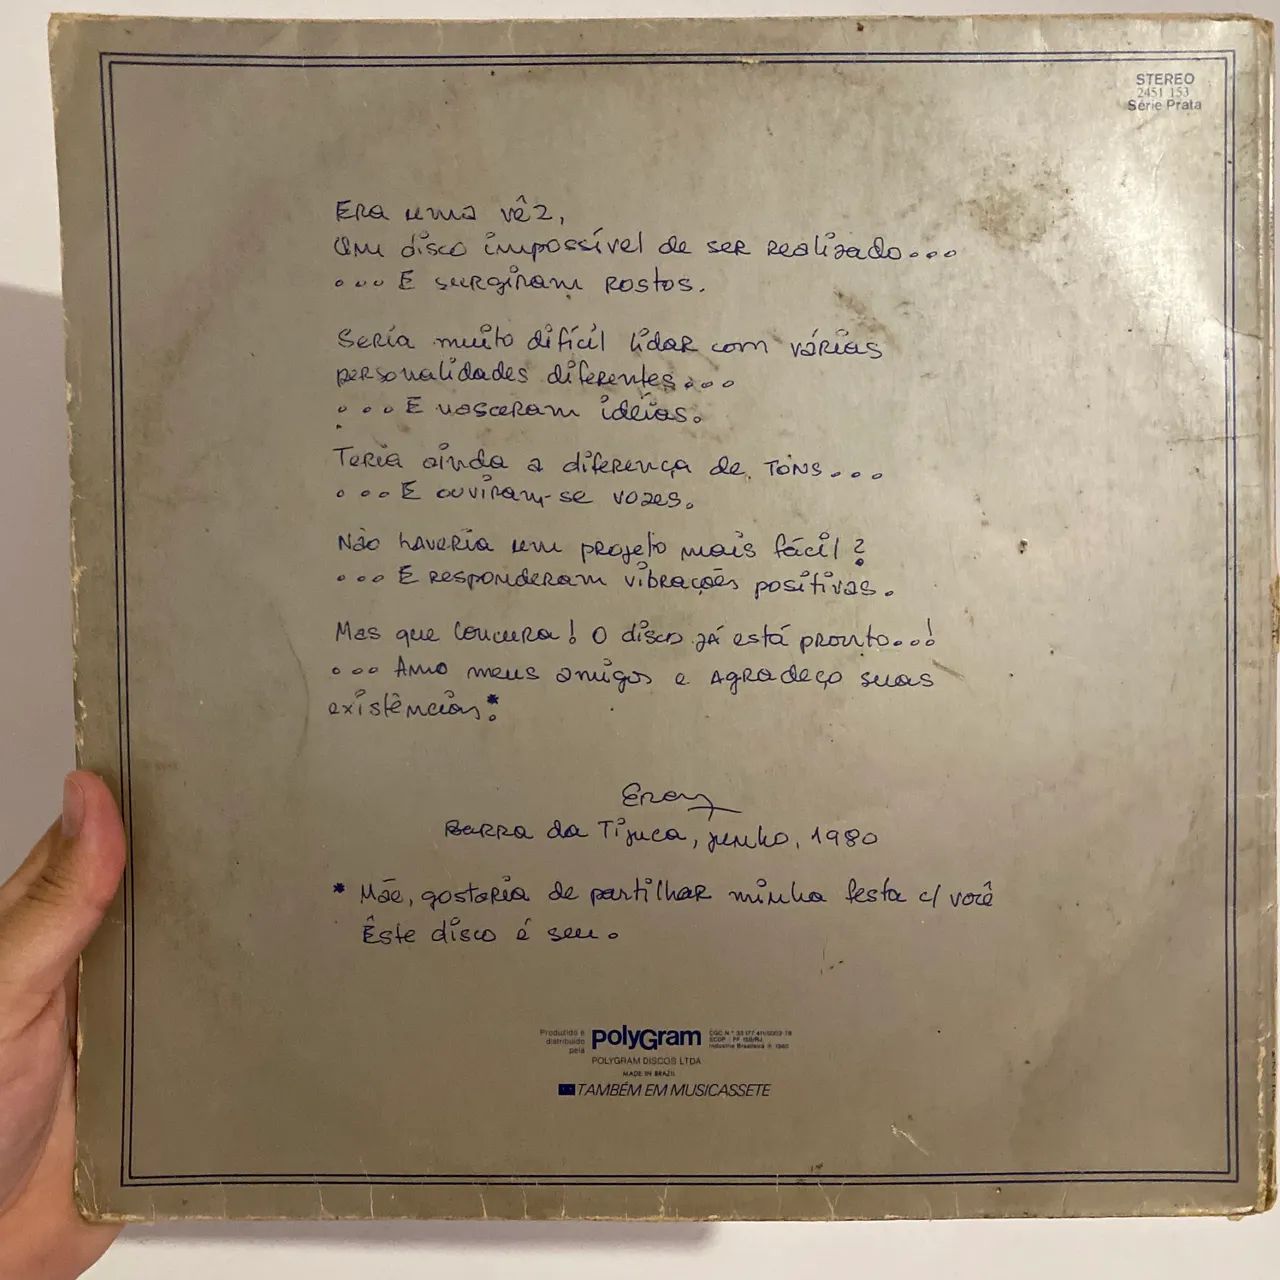 STEREO
2451 153
Série Prata
Era uma vêz,
Um disco impossível de ser realizado...
... E surgiram rostos.
Seria muito difícil lidar com várias
personalidades diferentes...
... E nasceram idéias.
Teria ainda a diferença de TONS...
... E ouviram-se vozes.
Não haveria um projeto mais fácil?
... E responderam vibrações positivas.
Mas que loucura! O disco já está pronto...!
... Amo meus amigos e agradeço suas
existências.*
Barra da Tijuca, junho, 1980
* Mãe, gostaria de partilhar minha festa c/ você
Êste disco é seu.
Produzido e
distribuído
pela
polyGram
POLYGRAM DISCOS LTDA
MADE IN BRAZIL
Indústria Brasileira ℗ 1980
TAMBÉM EM MUSICASSETE